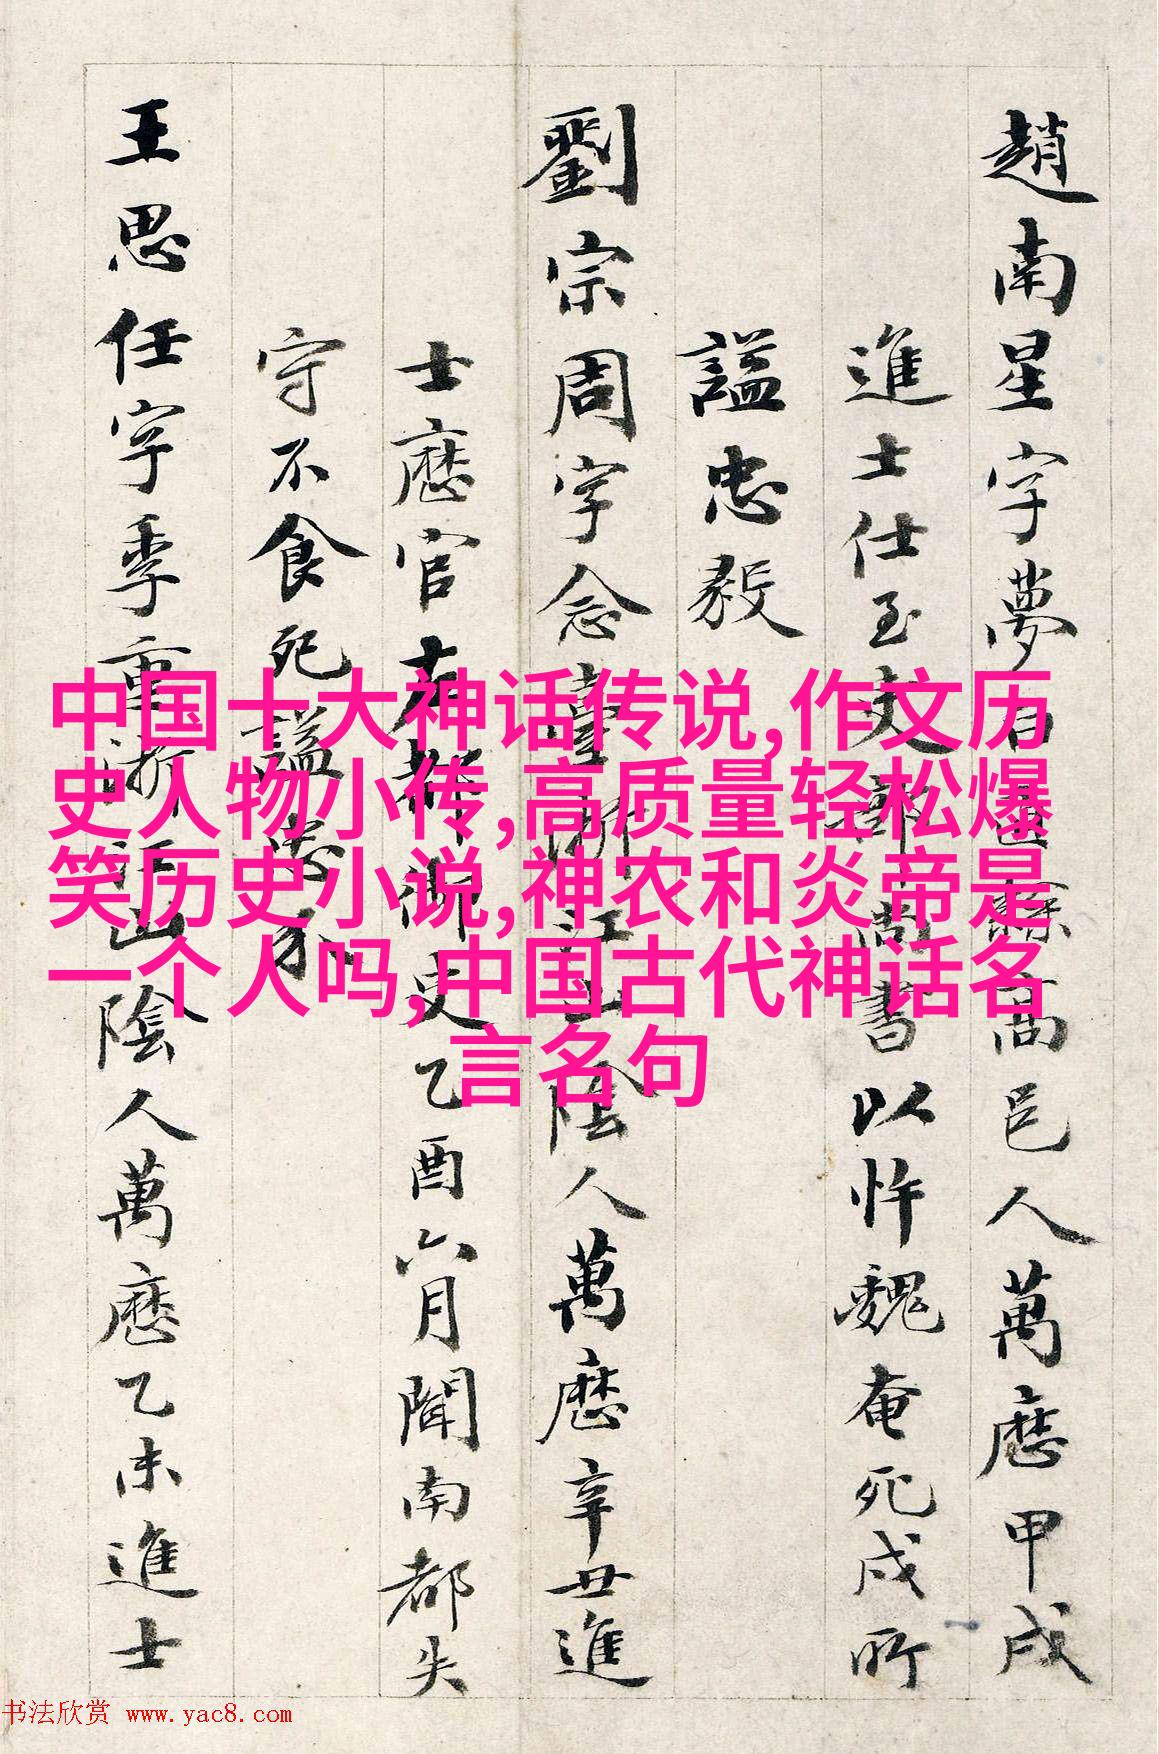 趙南星字夢白直隸高邑人萬歷甲戌
進士仕至吏部尚書以忤魏奄死戍所
諡忠毅
劉宗周字念臺浙江山陰人萬歷辛丑進
士歷官左都御史乙酉六月聞南都失
守不食死諡忠介
王思任字季重浙江山陰人萬歷乙未進士
中国十大神话传说,作文历
史人物小传,高质量轻松爆
笑历史小说,神农和炎帝是
一个人吗,中国古代神话名
言名句
书法欣赏 www.yac8.com